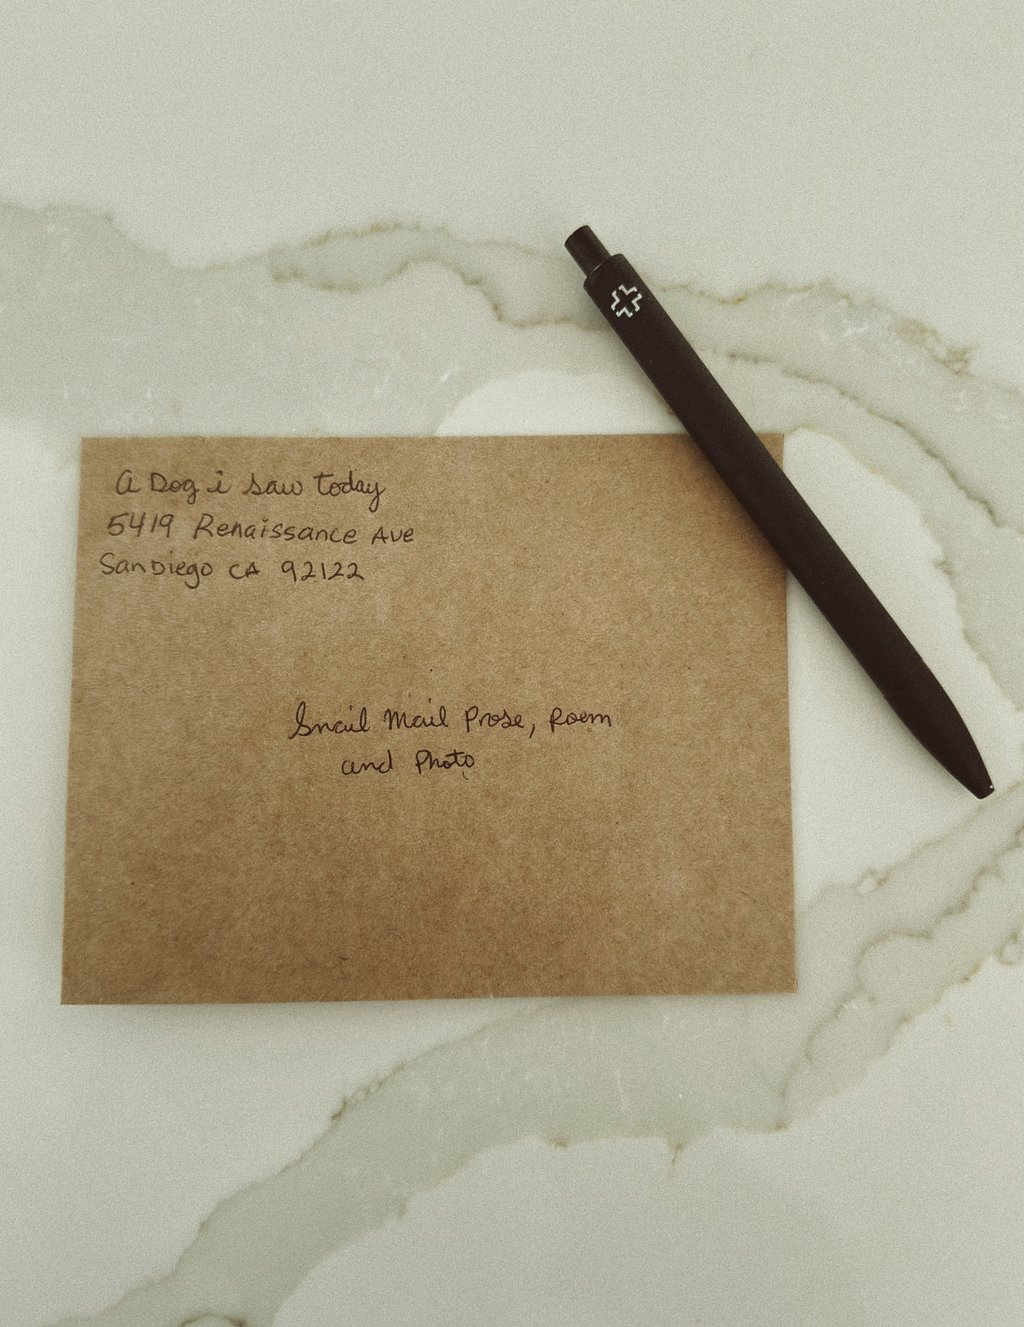 A Dog i saw today
5419 Renaissance Ave
San Diego CA 92122
Snail Mail Prose, Poem
and Photo